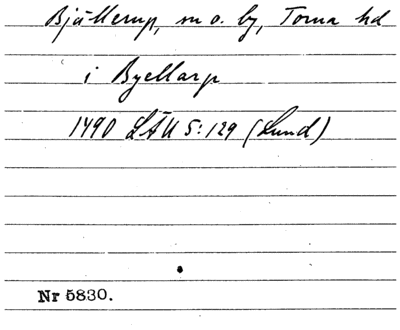 Bjällerup, sn o. by, Torna hd
i Byellarp
1490 LÄU 5:129 (Lund)
Nr 5830.